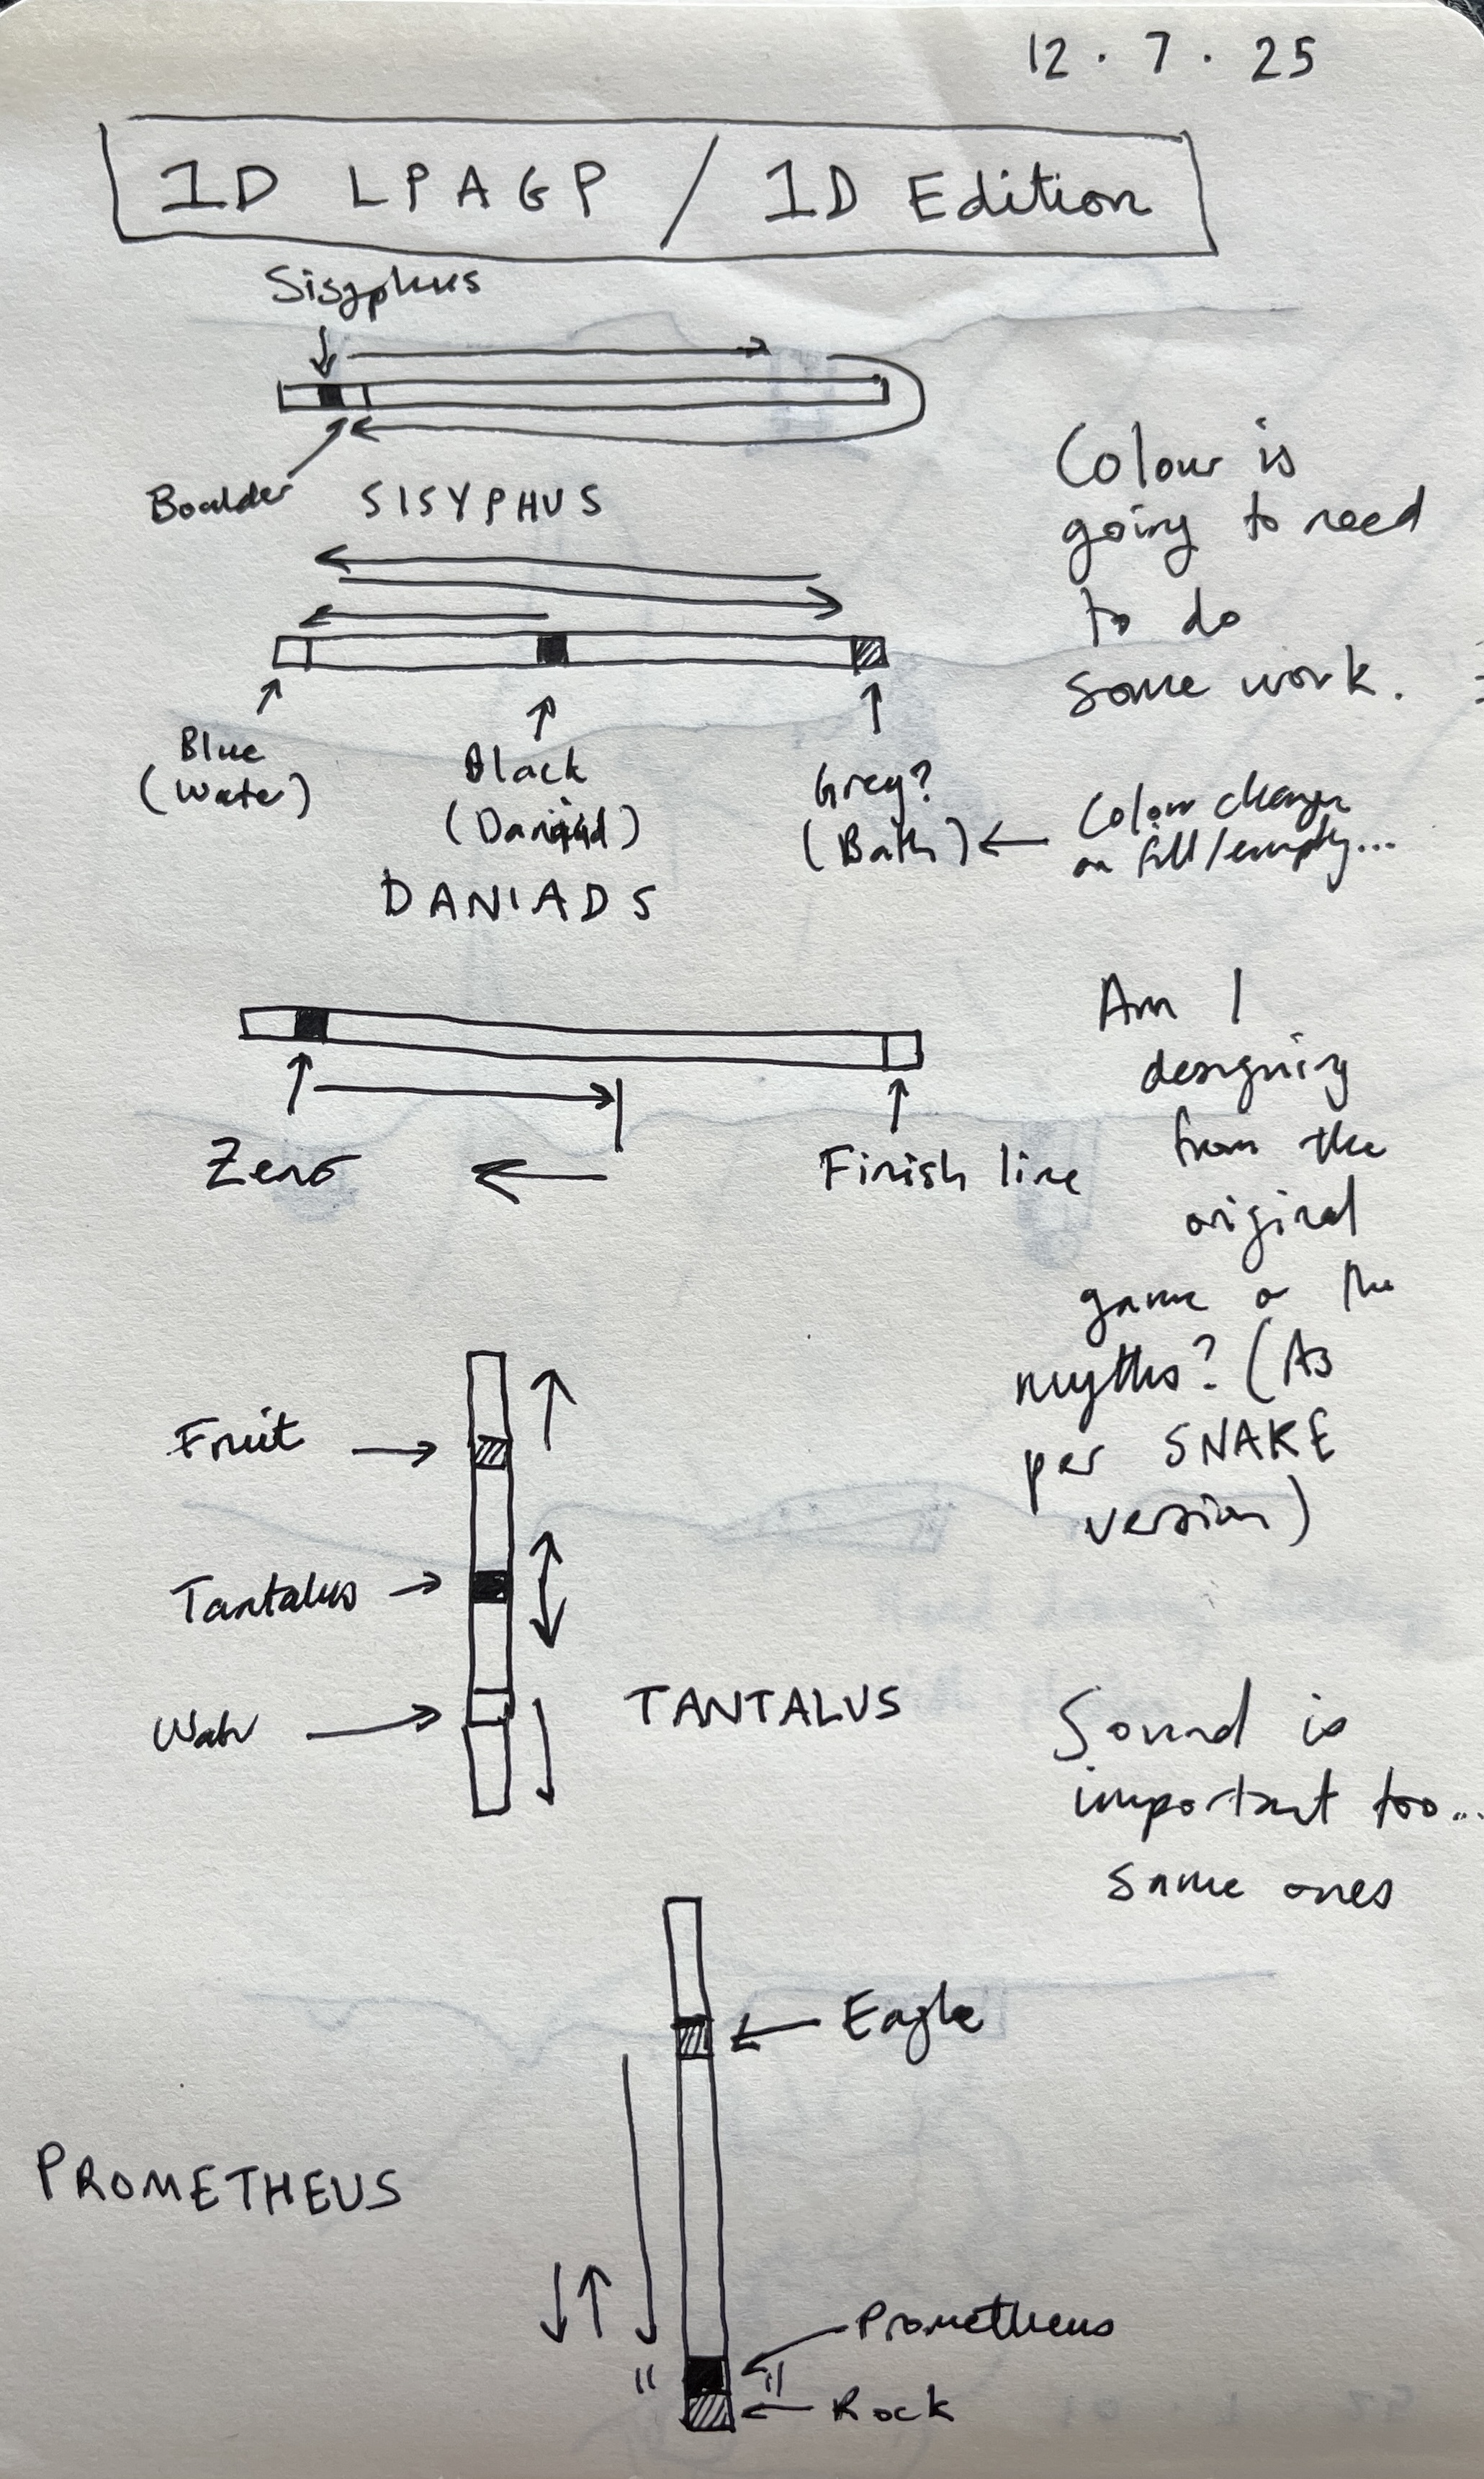 12.7.25
1D LPAGP / 1D Edition
Sisyphus
Boulder
SISYPHUS
Colour is
going to need
to do
some work.
Blue
(Water)
Black
(Daniad)
Grey?
(Bath)
Colour changes
on fill/empty...
DANIADS
Zeno
Finish line
Am I
designing
from the
original
game or the
myths? (As
per SNAKE
version)
Fruit
Tantalus
Water
TANTALUS
Sound is
important too...
Same ones
Eagle
PROMETHEUS
Prometheus
Rock